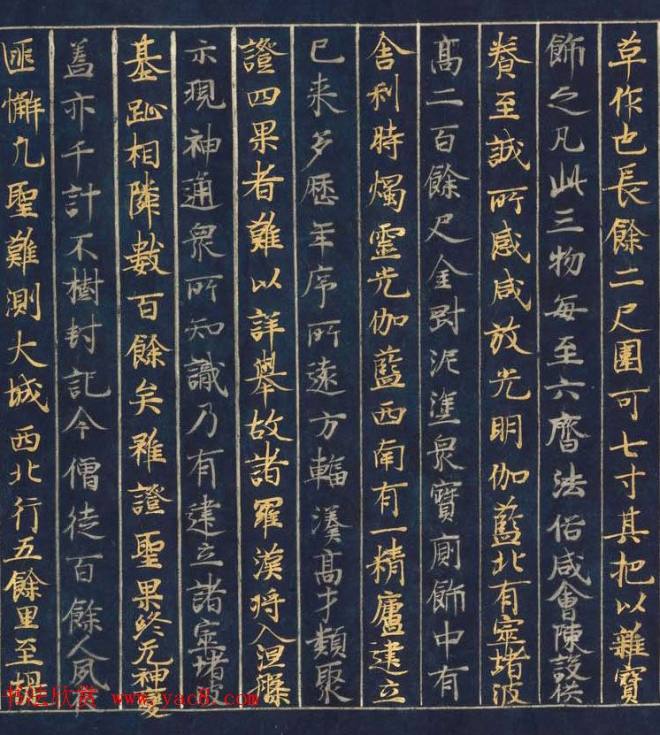 草作也長餘二尺圍可七寸其把以雜寶
飾之凡此三物每至六齋法俗咸會陳設供
養至誠所感咸放光明伽藍北有窣堵波
高二百餘尺金剛泥塗衆寶廁飾中有
舍利時燭靈光伽藍西南有一精廬建立
已来多歷年序所遠方輻湊高才類聚
證四果者難以詳舉故諸羅漢將入涅槃
示現神通衆所知識乃有建立諸窣堵波
基趾相隣數百餘矣雖證聖果終无神變
蓋亦千計不樹封記今僧徒百餘人夙
匪懈凡聖難測大城西北行五餘里至提
书法欣赏 www.yac8.com